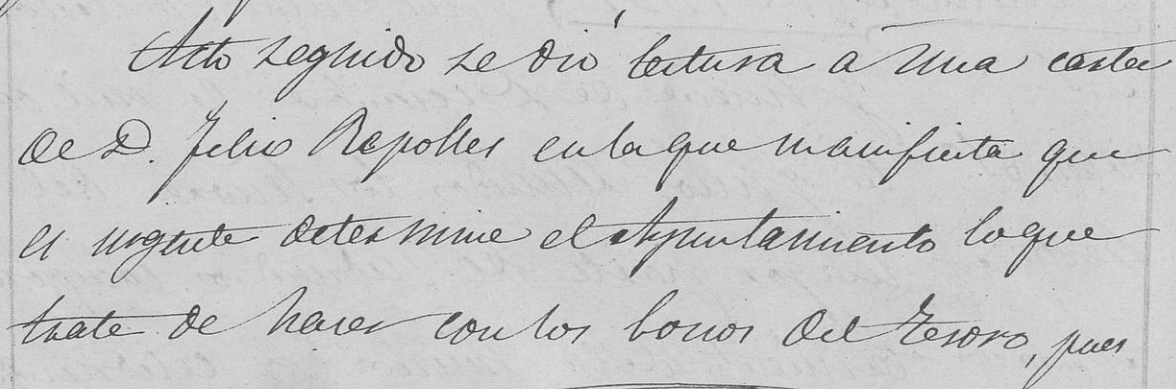 Acto seguido se dió lectura a una carta
de D. Felix Repolles en la que manifiesta que
es urgente determine el Ayuntamiento lo que
trate de hacer con los bonos del Tesoro, pues